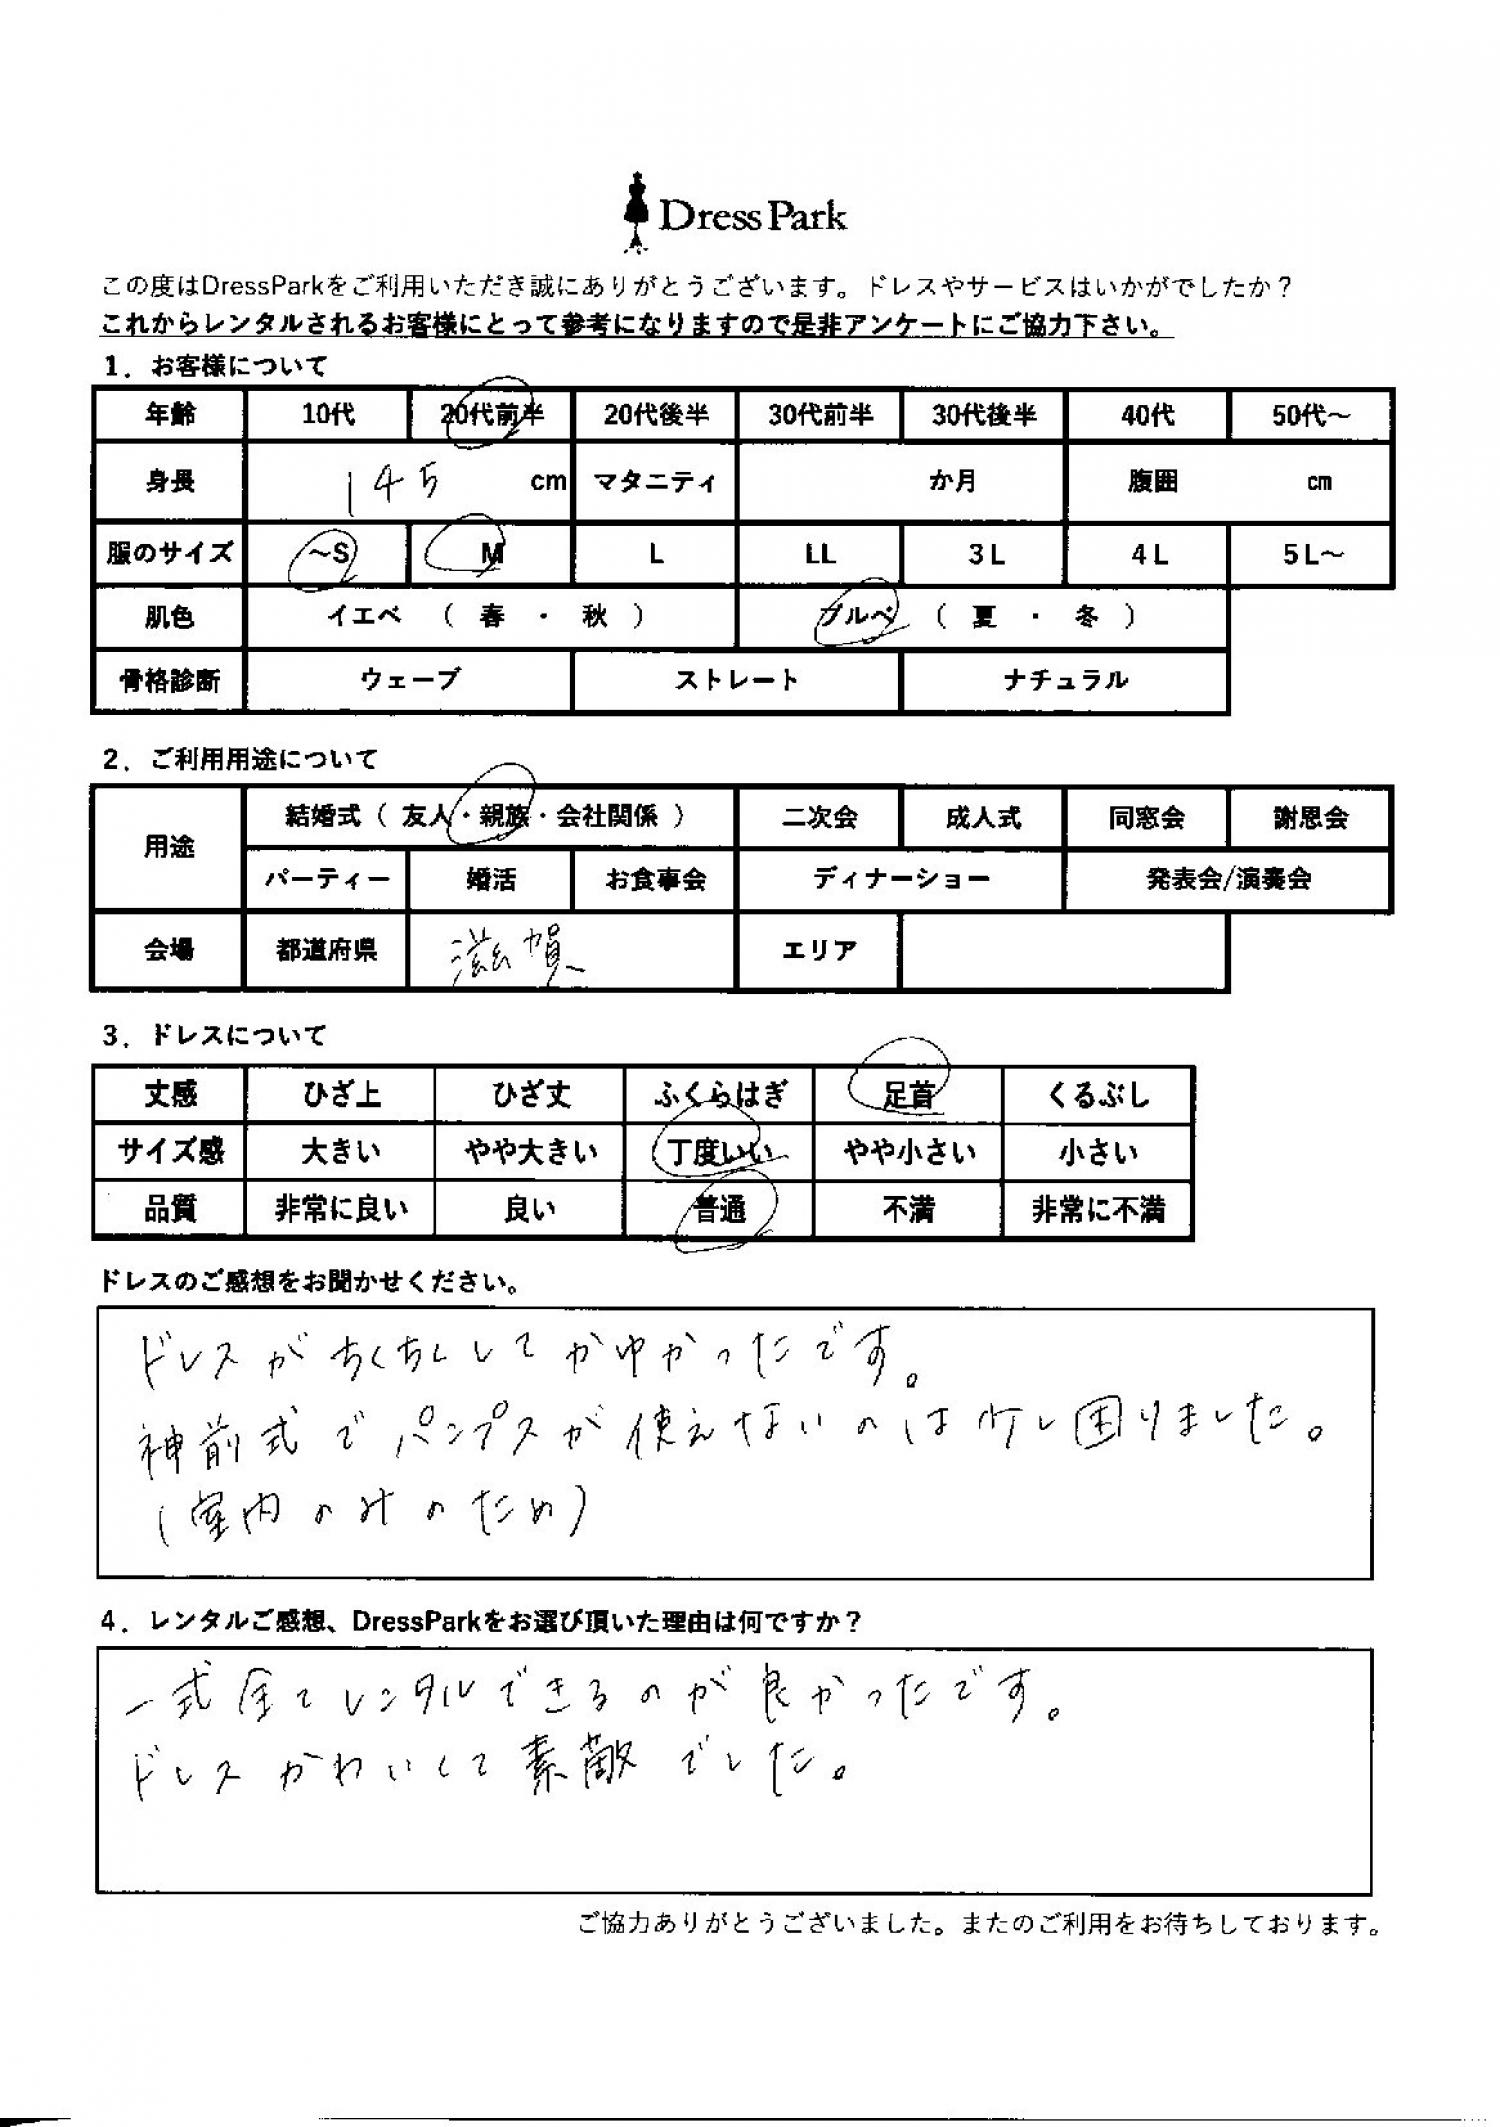 Dress Park
この度はDressParkをご利用いただき誠にありがとうございます。ドレスやサービスはいかがでしたか？
これからレンタルされるお客様にとって参考になりますので是非アンケートにご協力下さい。
1．お客様について
年齢 10代 20代前半 20代後半 30代前半 30代後半 40代 50代～
身長 145 cm マタニティ か月 腹囲 cm
服のサイズ ～S M L LL 3L 4L 5L～
肌色 イエベ （ 春 ・ 秋 ） ブルベ （ 夏 ・ 冬 ）
骨格診断 ウェーブ ストレート ナチュラル
2．ご利用用途について
用途 結婚式（ 友人・親族・会社関係 ） 二次会 成人式 同窓会 謝恩会
パーティー 婚活 お食事会 ディナーショー 発表会/演奏会
会場 都道府県 滋賀 エリア
3．ドレスについて
丈感 ひざ上 ひざ丈 ふくらはぎ 足首 くるぶし
サイズ感 大きい やや大きい 丁度いい やや小さい 小さい
品質 非常に良い 良い 普通 不満 非常に不満
ドレスのご感想をお聞かせください。
ドレスがちくちくしてかゆかったです。
神前式でパンプスが使えないのは少し困りました。
（室内のみのため）
4．レンタルご感想、DressParkをお選び頂いた理由は何ですか？
一式全てレンタルできるのが良かったです。
ドレスかわいくて素敵でした。
ご協力ありがとうございました。またのご利用をお待ちしております。